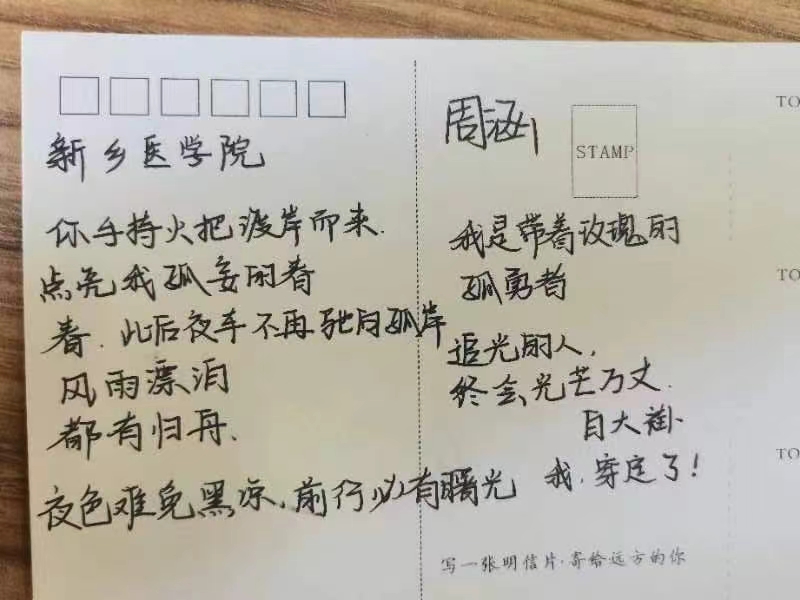 新乡医学院
你手持火把渡岸而来.
点亮我孤妄的春
春.此后夜车不再驰向孤岸
风雨漂泊
都有归舟.
夜色难免黑凉,前行必有曙光
周涵
STAMP
我是带着玫瑰的
孤勇者
追光的人,
终会光芒万丈.
白大褂
我,穿定了!
写一张明信片·寄给远方的你
TO
TO
TO